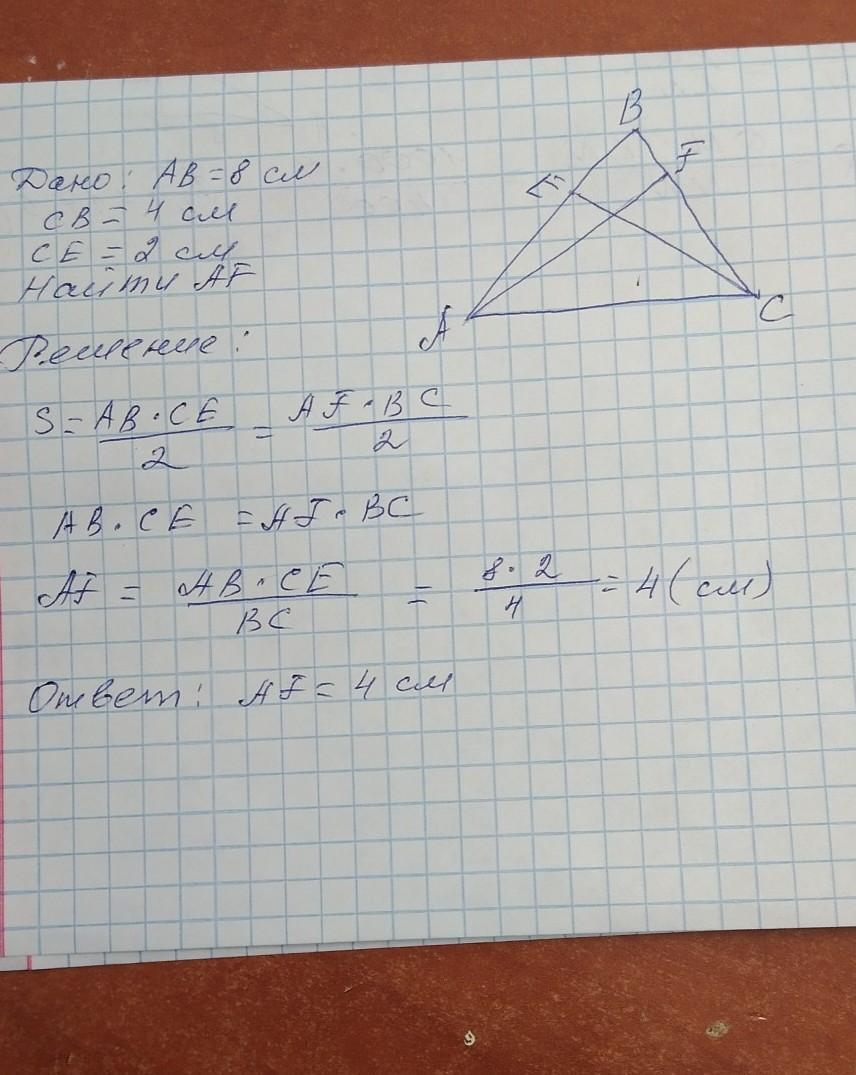 Дано: AB = 8 см
CB = 4 см
CE = 2 см
Найти AF
B
F
E
A
C
Решение:
S = AB · CE / 2 = AF · BC / 2
AB · CE = AF · BC
AF = AB · CE / BC = 8 · 2 / 4 = 4 (см)
Ответ: AF = 4 см